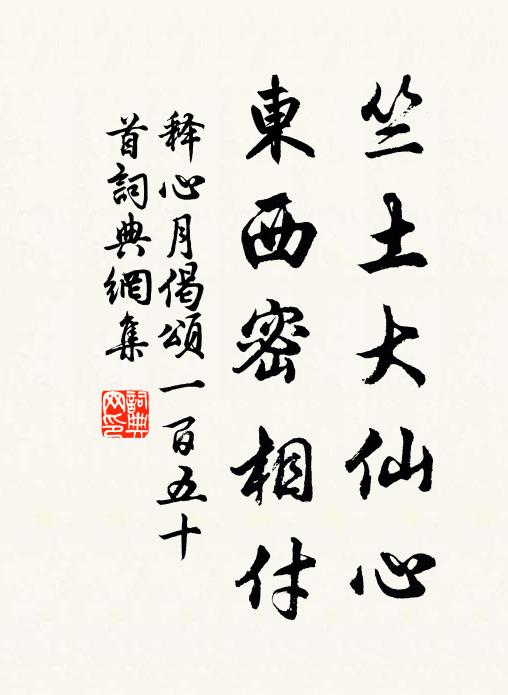 竺土大仙心
東西密相付
释心月偈頌一百五十
首詞典網集
詞典网印